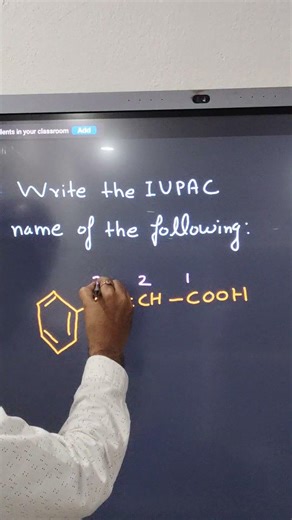 dents in your classroom Add
Write the IUPAC
name of the following:
2 1
CH – COOH